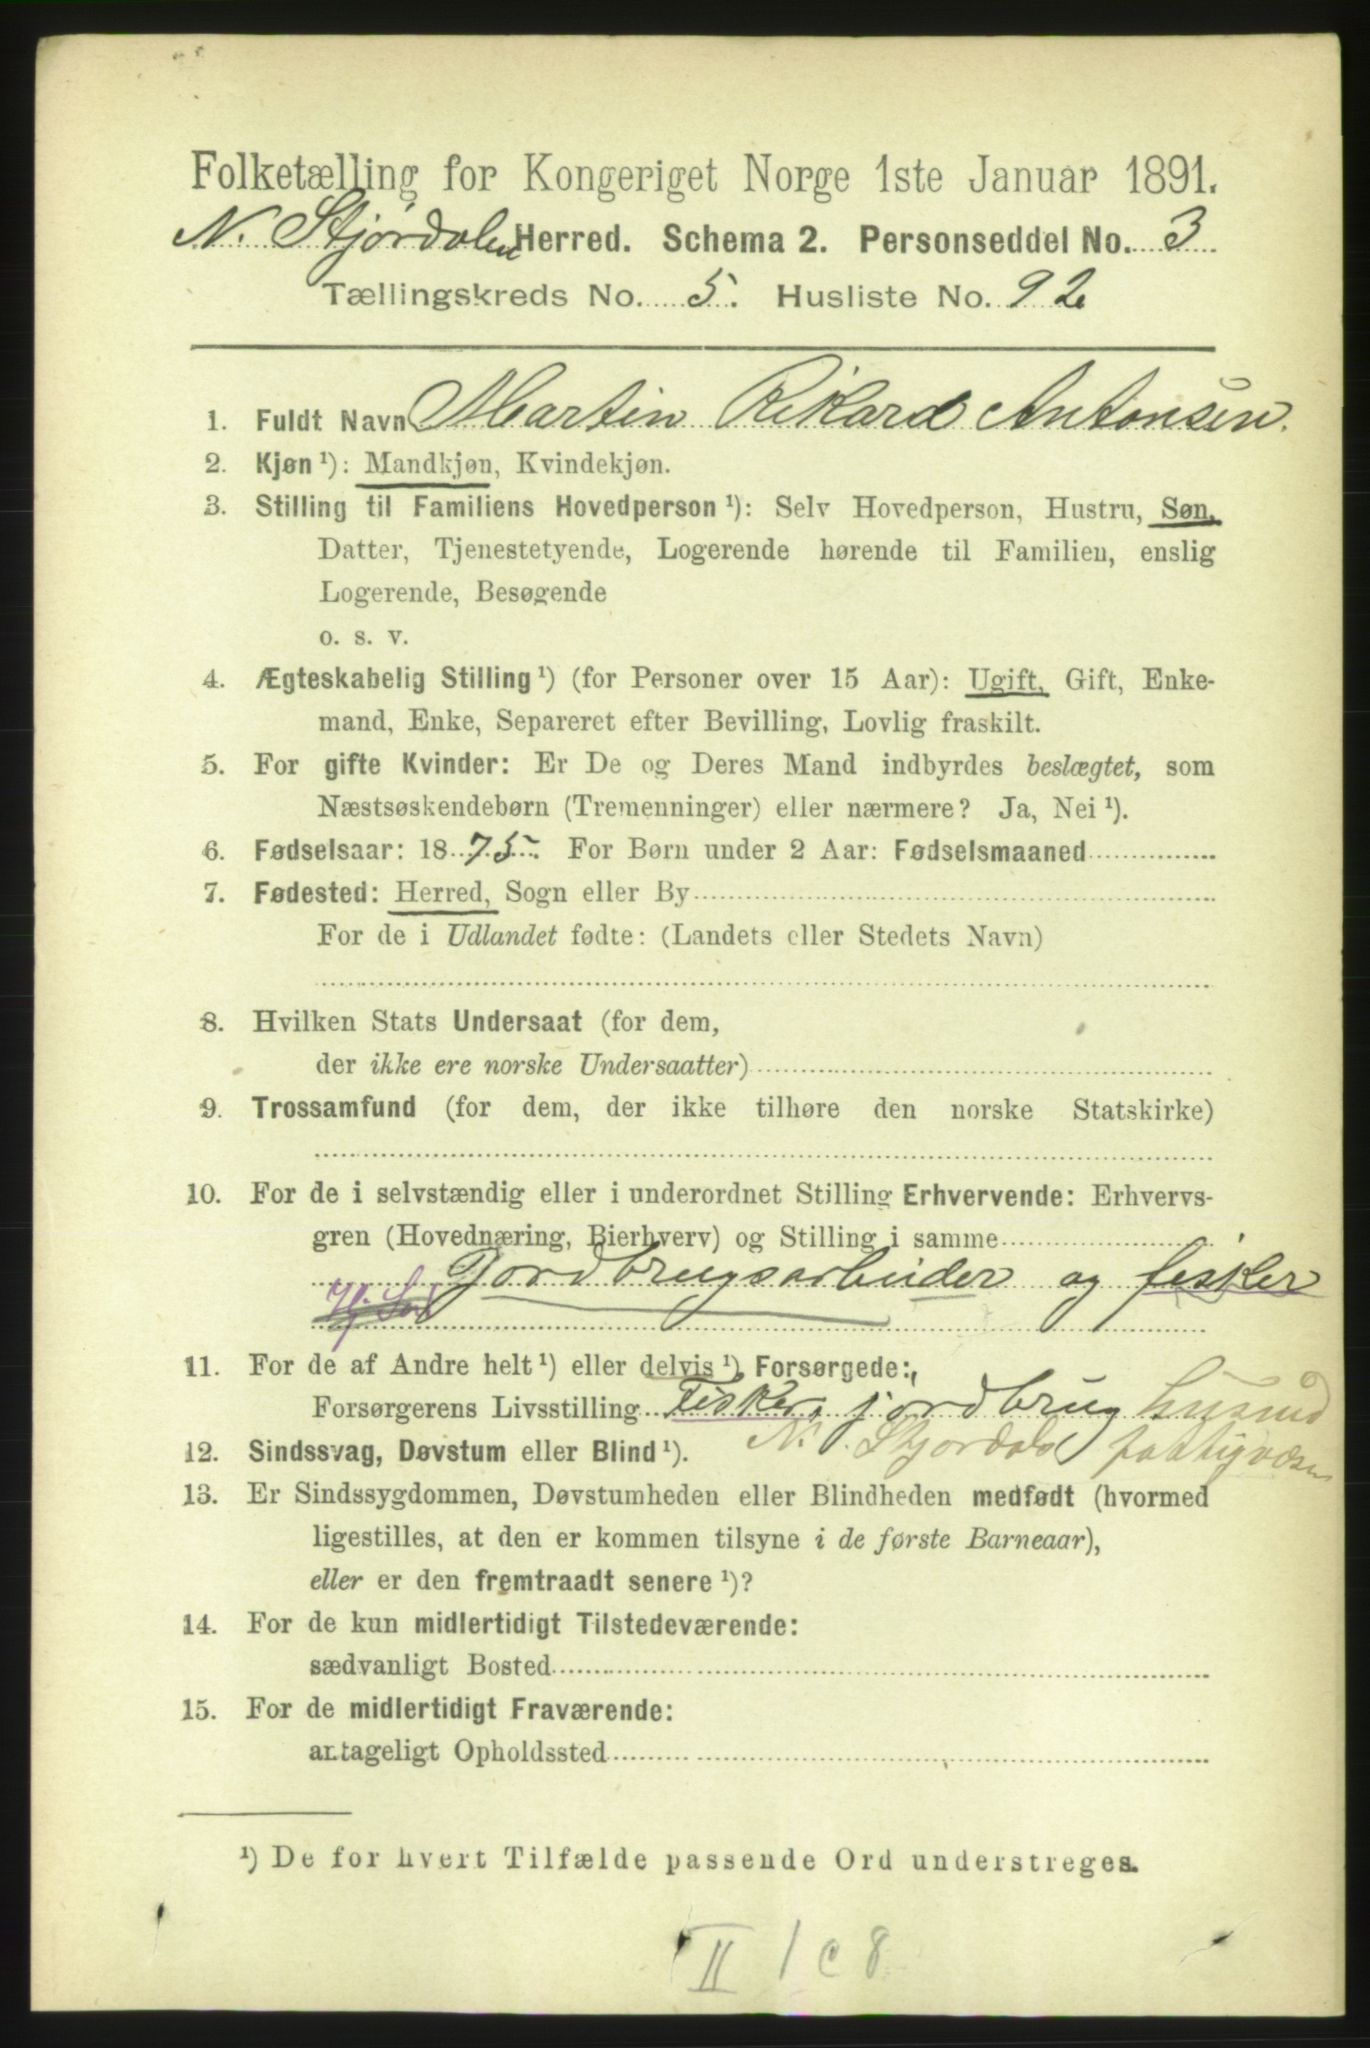 Folketælling for Kongeriget Norge 1ste Januar 1891.
N. Stjørdalen Herred. Schema 2. Personseddel No. 3
Tællingskreds No. 5. Husliste No. 92
1. Fuldt Navn Martin Rikard Antonsen.
2. Kjøn ¹): Mandkjøn, Kvindekjøn.
3. Stilling til Familiens Hovedperson ¹): Selv Hovedperson, Hustru, Søn,
Datter, Tjenestetyende, Logerende hørende til Familien, enslig
Logerende, Besøgende
o. s. v.
4. Ægteskabelig Stilling ¹) (for Personer over 15 Aar): Ugift, Gift, Enke-
mand, Enke, Separeret efter Bevilling, Lovlig fraskilt.
5. For gifte Kvinder: Er De og Deres Mand indbyrdes beslægtet, som
Næstsøskendebørn (Tremenninger) eller nærmere? Ja, Nei ¹).
6. Fødselsaar: 1875. For Børn under 2 Aar: Fødselsmaaned
7. Fødested: Herred, Sogn eller By
For de i Udlandet fødte: (Landets eller Stedets Navn)
8. Hvilken Stats Undersaat (for dem,
der ikke ere norske Undersaatter)
9. Trossamfund (for dem, der ikke tilhøre den norske Statskirke)
10. For de i selvstændig eller i underordnet Stilling Erhvervende: Erhvervs-
gren (Hovednæring, Bierhverv) og Stilling i samme
Jordbrugsarbeider og fisker
11. For de af Andre helt ¹) eller delvis ¹) Forsørgede:
Forsørgerens Livsstilling Fisker, jordbrug husmd
N. Stjørdals fattigvæsen
12. Sindssvag, Døvstum eller Blind ¹).
13. Er Sindssygdommen, Døvstumheden eller Blindheden medfødt (hvormed
ligestilles, at den er kommen tilsyne i de første Barneaar),
eller er den fremtraadt senere ¹)?
14. For de kun midlertidigt Tilstedeværende:
sædvanligt Bosted
15. For de midlertidigt Fraværende:
antageligt Opholdssted
¹) De for hvert Tilfælde passende Ord understreges.
II 1 c 8